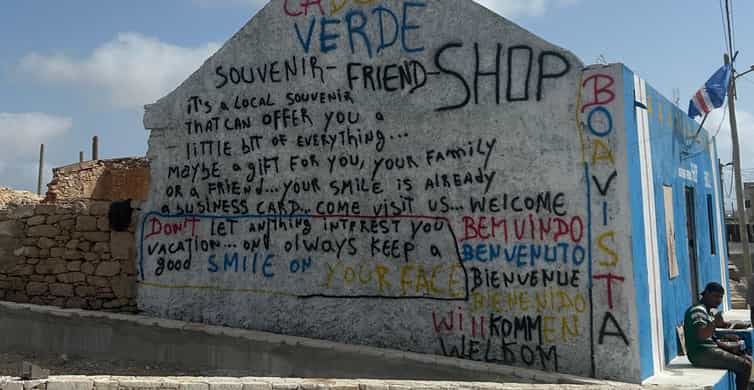 CABO
VERDE
SOUVENIR-FRIEND-SHOP
it's A LOCAL SOUVENIR
THAT CAN OFFER YOU A
- LITTLE BIT OF EVERYTHING...
MAYBE A GIFT FOR YOU, YOUR FAMILY
OR A FRIEND... YOUR SMILE IS ALREADY
A BUSINESS CARD... COME VISIT US... WELCOME
DON'T LET ANYTHING INTEREST YOU
VACATION... ONd ALWAYS KEEP A
good SMILE ON YOUR FACE
BEM VINDO
BENVENUTO
BIENVENUE
BIENENIDO
WillKOMMEN
WELKOM
BOAVISTA